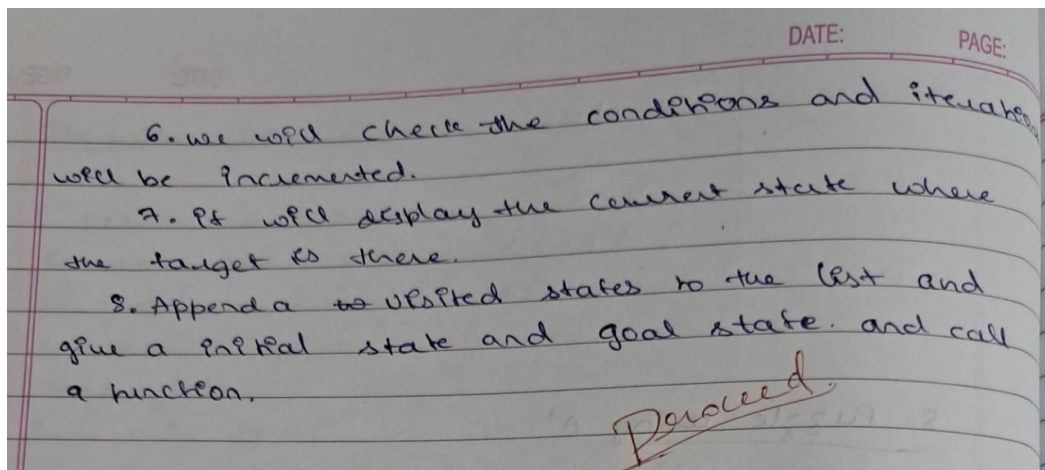 DATE: PAGE:
6. we will check the conditions and iteration
will be incremented.
7. it will display the current state where
the target is there.
8. Append a to visited states to the list and
give a initial state and goal state. and call
a function.
Proceed.